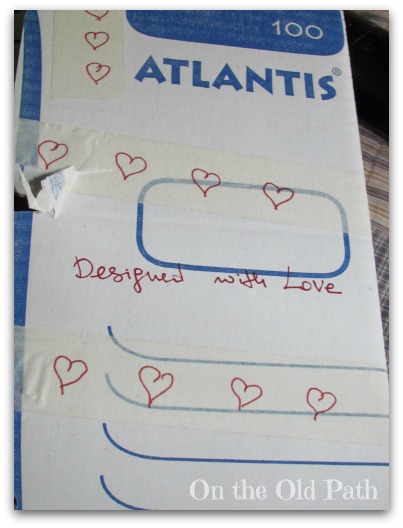 100
ATLANTIS®
Designed with Love
On the Old Path